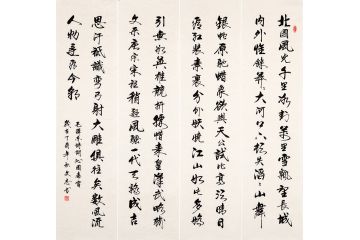 北國風光千里冰封萬里雪飄望長城
内外惟餘莽莽大河上下頓失滔滔山舞
銀蛇原馳蠟象欲與天公試比高須晴日
看紅裝素裹分外妖嬈江山如此多嬌
引無數英雄競折腰惜秦皇漢武略輸
文采唐宗宋祖稍遜風騷一代天驕成吉
思汗祗識彎弓射大雕俱往矣數風流
人物還看今朝
毛澤東詩詞沁園春雪
歲在丁酉年